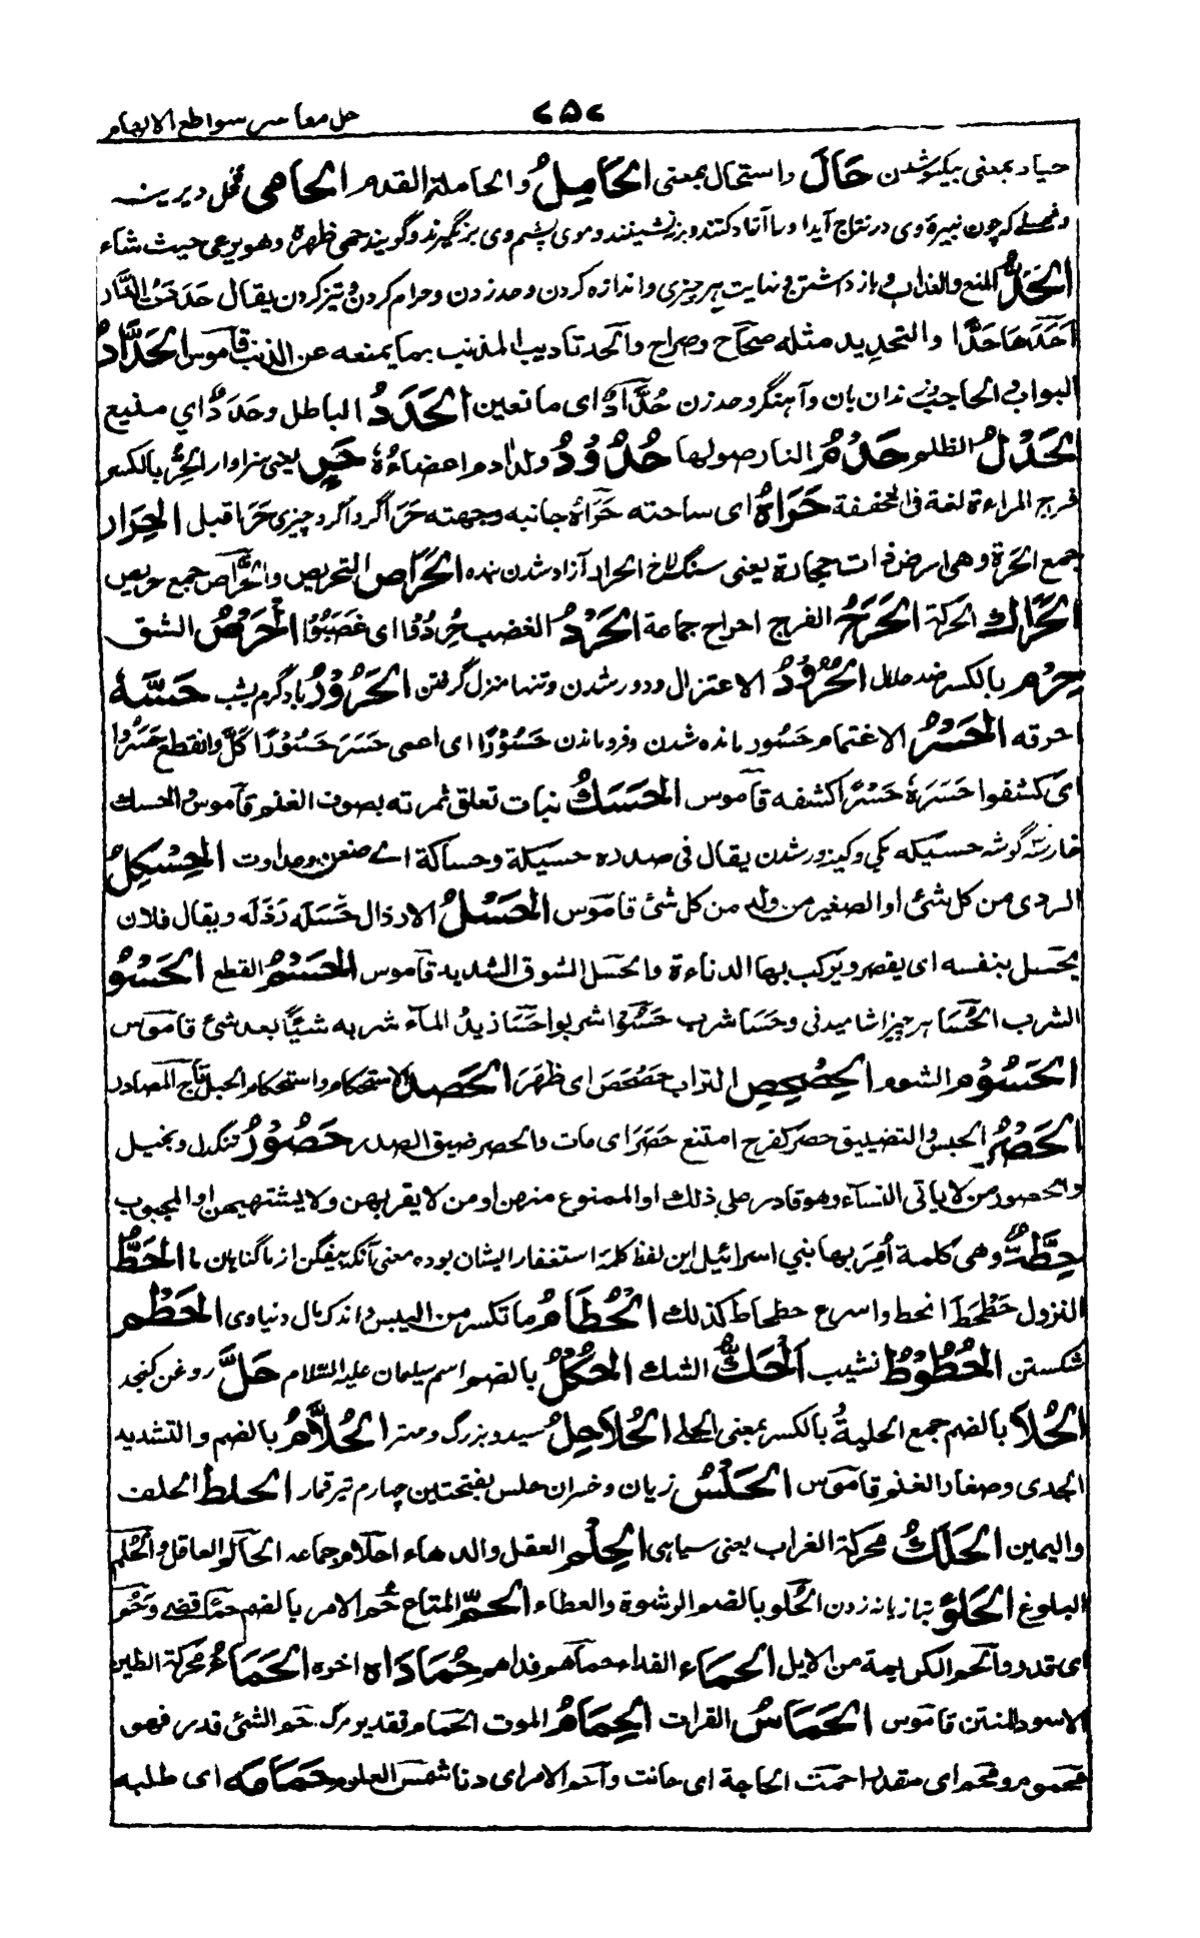 حل معا سر سواطع الالهام
<۵<
حیاد بمعنی بیکسوشدن حَالَ واستحال بمعنی الحَامِلُ والحاملة القدم الحامی فحل دیرینہ
کہ چون نبیرۂ وی در نتاج آید اورا آزاد کنند و برنشینند و موی پشم وی برنگیرند و گویند حمی ظهرہ وهو یرعی حیث شاء
الحَدُّ المنع والعذاب و باز داشتن و نهایت هر چیزی و اندازہ کردن وحد زدن وحرام کردن و تیز کردن یقال حَدَمَتُ النَّار
اَحَدَهَا حَدًّا والتحدید مثله صحاح وصراح والحد تادیب المذنب بما یمنعه عن الذنب قاموس الحَدَّادُ
البواب والحاجب زندان بان وآهنگر وحد زن حُدَّادٌ ای مانعین الحَدَدُ الباطل وحَدَدٌ ای منیع
الحَدْلُ الظلم حَدْمُ النار صولها حُدُوْدُ ولد آدم اعضاءُهٗ حَرٍ یعنی سزاوار الحِرُ بالکسر
فرج المراءة لغة فی المخففة حَرَاهُ ای ساحته حَرَاهُ جانبه وجهته حَرَا گردا گرد چیزی حَرَا قبل الحِرَار
جمع الحَرَّة وهی ارض ذات حجارة یعنی سنگلاخ الحرار آزاد شدن بندہ الحَرَاص التحریص والحُرَّاص جمع حریص
الحَرَاك الحرکة الحَرَجُ الفرج احراج جماعة الحَرْدُ الغضب حُرِدُوْا ای غَضِبُوْا الحَرْصُ الشق
حِرْمٌ بالکسر ضد حلال الحُرُوْدُ الاعتزال ودور شدن و تنها منزل گرفتن الحَرُوْرُ باد گرم بشب حَسَّهٗ
احرقه الحَسْرُ الاغتمام حَسُوْر ماندہ شدن و فرو ماندن حَسُوْرًا ای اعمی حَسَرَ حَسُوْرًا کَلَّ وانقطع حَسَرُوا
ای کشفوا حَسَرَهٗ حَسْرًا کشفه قاموس الحَسَكُ نبات تعلق ثمرته بصوف الغنم قاموس والحسك
خار سه گوشه حسیکه وکینه ور شدن یقال فی صدره حسیکة وحساکة ای ضغن وعداوت الحِسْكِلُ
الردی من کل شئ او الصغیر من ولد من کل شئ قاموس الحَسْلُ الارذال حَسَلَه رَذَلَه ویقال فلان
یحسل بنفسه ای یقصر ویرکب بها الدناءة والحسل السوق الشدید قاموس الحَسْمُ القطع الحَسْوُ
الشرب الحُسَا هر چیز اشامیدنی وحَسَا شرب حَسَوْا شربوا حَسَا زیدُ المآء شربه شیئًا بعد شئ قاموس
الحَسُوْم الشوم الحِصْحِصِ التراب حَصْحَصَ ای ظَهَرَ الحَصَد الاستحکام واستحکام الحبل تاج المصادر
الحَصْرُ الحبس والتضییق حصر کفرح امتنع حَصَرَ ای مات والحصر ضیق الصدر حَصُوْرُ تنگدل وبخیل
والحصور من لا یاتی النسآء وهو قادر علی ذلك او الممنوع منهن او من لا یقربهن ولا یشتهیهن او المجبوب
حِطَّةٌ وهی کلمة اُمِرَ بها بنی اسرائیل این لفظ کلمۂ استغفار ایشان بوده معنی آنکه بیفگن از ما گناہان ما الحَطُّ
النزول حَطْحَطَ انحط واسرع حطحاط کذلك الحُطَامُ ما تکسر من الیبس واندک مال دنیاوی الحَطْم
شکستن الحُطُوْطُ نشیب الحَكُّ الشك الحُكْلُ بالضم اسم سلیمان علیه السّلام حَلَّ روغن کنجد
الحُلَا بالضم جمع الحلیةُ بالکسر بمعنی الحلی الحُلَاحِلُ سید وبزرگ ومهتر الحُلَّامُ بالضم والتشدید
الجدی وصغار الغنم قاموس الحَلْسُ زیان وخسران حلس بفتحتین چهارم تیر قمار الحلط الحلف
والیمین الحَلَكُ محرکة الغراب یعنی سیاہی الحِلْم العقل والدهاء احلام جماعه الحالم العاقل والحُلم
البلوغ الحَلْوُ بتازیانه زدن الحُلو بالضم الرشوة والعطاء الحَمّ المتاع حُم الامر بالضم حَمًّا قضی وحُم
ای قدر والحم الکریمة من الابل الحِمَاء الفداء حماهم فداهم حُمَادَاه اخره الحَمَاءُ محرکة الطین
الاسود المنتن قاموس الحَمَاسُ القرات الحِمَامُ الموت الحمام تقدیر مرگ حم الشئ قدر فهو
محموم ومحم ای مقدر احمت الحاجة ای حانت واحم الامر ای دنا شمس العلوم حَمَامَه ای طلبه